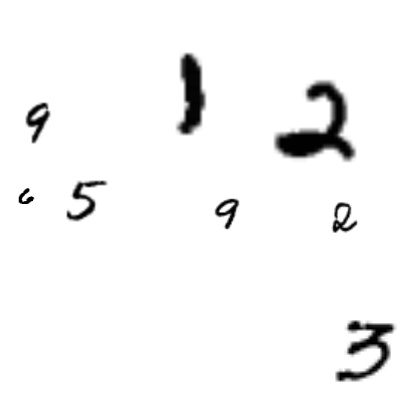 9 1 2
6 5 9 2
3